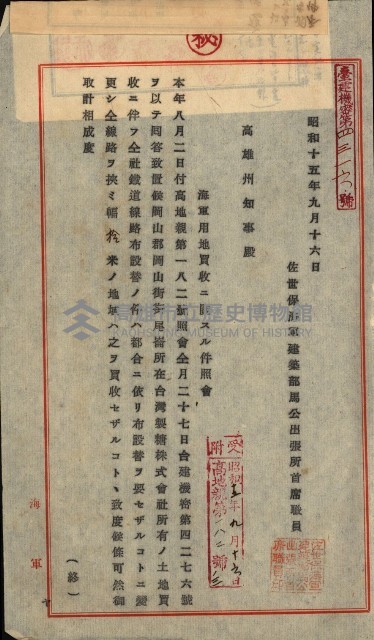 秘
臺建機密第四三一六號
昭和十五年九月十六日
佐世保海軍建築部馬公出張所首席職員
高雄州知事殿
海軍用地買收ニ關スル件照會
本年八月二日付高地親第一八二號照會仝月二十七日台建機密第四二七六號
ヲ以テ回答致置候岡山郡岡山街街尾崙所在台灣製糖株式會社所有ノ土地買
收ニ伴フ仝社鐵道線路布設替ノ件ハ都合ニ依リ布設替ヲ要セザルコトニ變
更シ仝線路ヲ挾ミ幅拾米ノ地域ハ之ヲ買收セザルコトヽ致度候條可然御
取計相成度
(終)
受附
昭和15年九月十六日
高地親第一八二號ノ三
海軍
高雄市立歷史博物館
KAOHSIUNG MUSEUM OF HISTORY